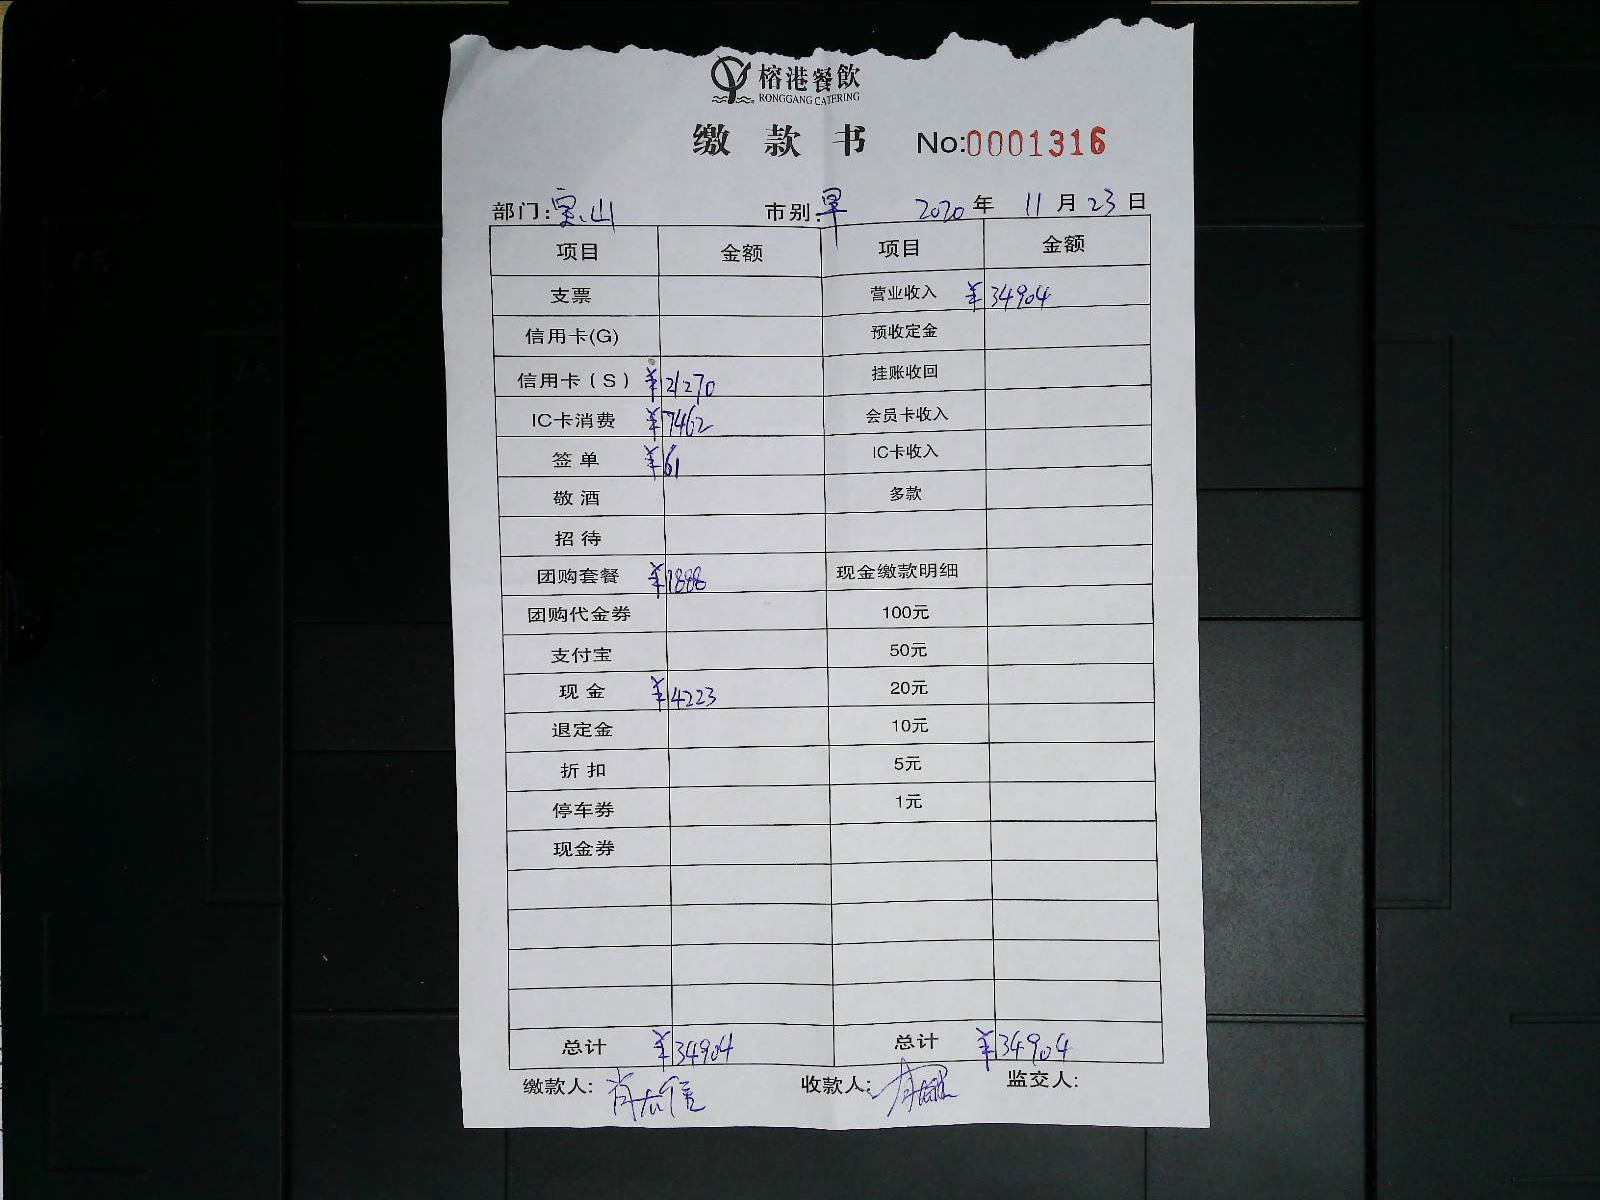 榕港餐飲
RONGGANG CATERING
缴款书 No:0001316
部门:宝山 市别:早 2020年 11月23日
项目 金额 项目 金额
支票 营业收入 ¥34904
信用卡(G) 预收定金
信用卡(S) ¥21270 挂账收回
IC卡消费 ¥7462 会员卡收入
签单 ¥61 IC卡收入
敬酒 多款
招待
团购套餐 ¥1888 现金缴款明细
团购代金券 100元
支付宝 50元
现金 ¥4223 20元
退定金 10元
折扣 5元
停车券 1元
现金券
总计 ¥34904 总计 ¥34904
缴款人: 收款人: 监交人: